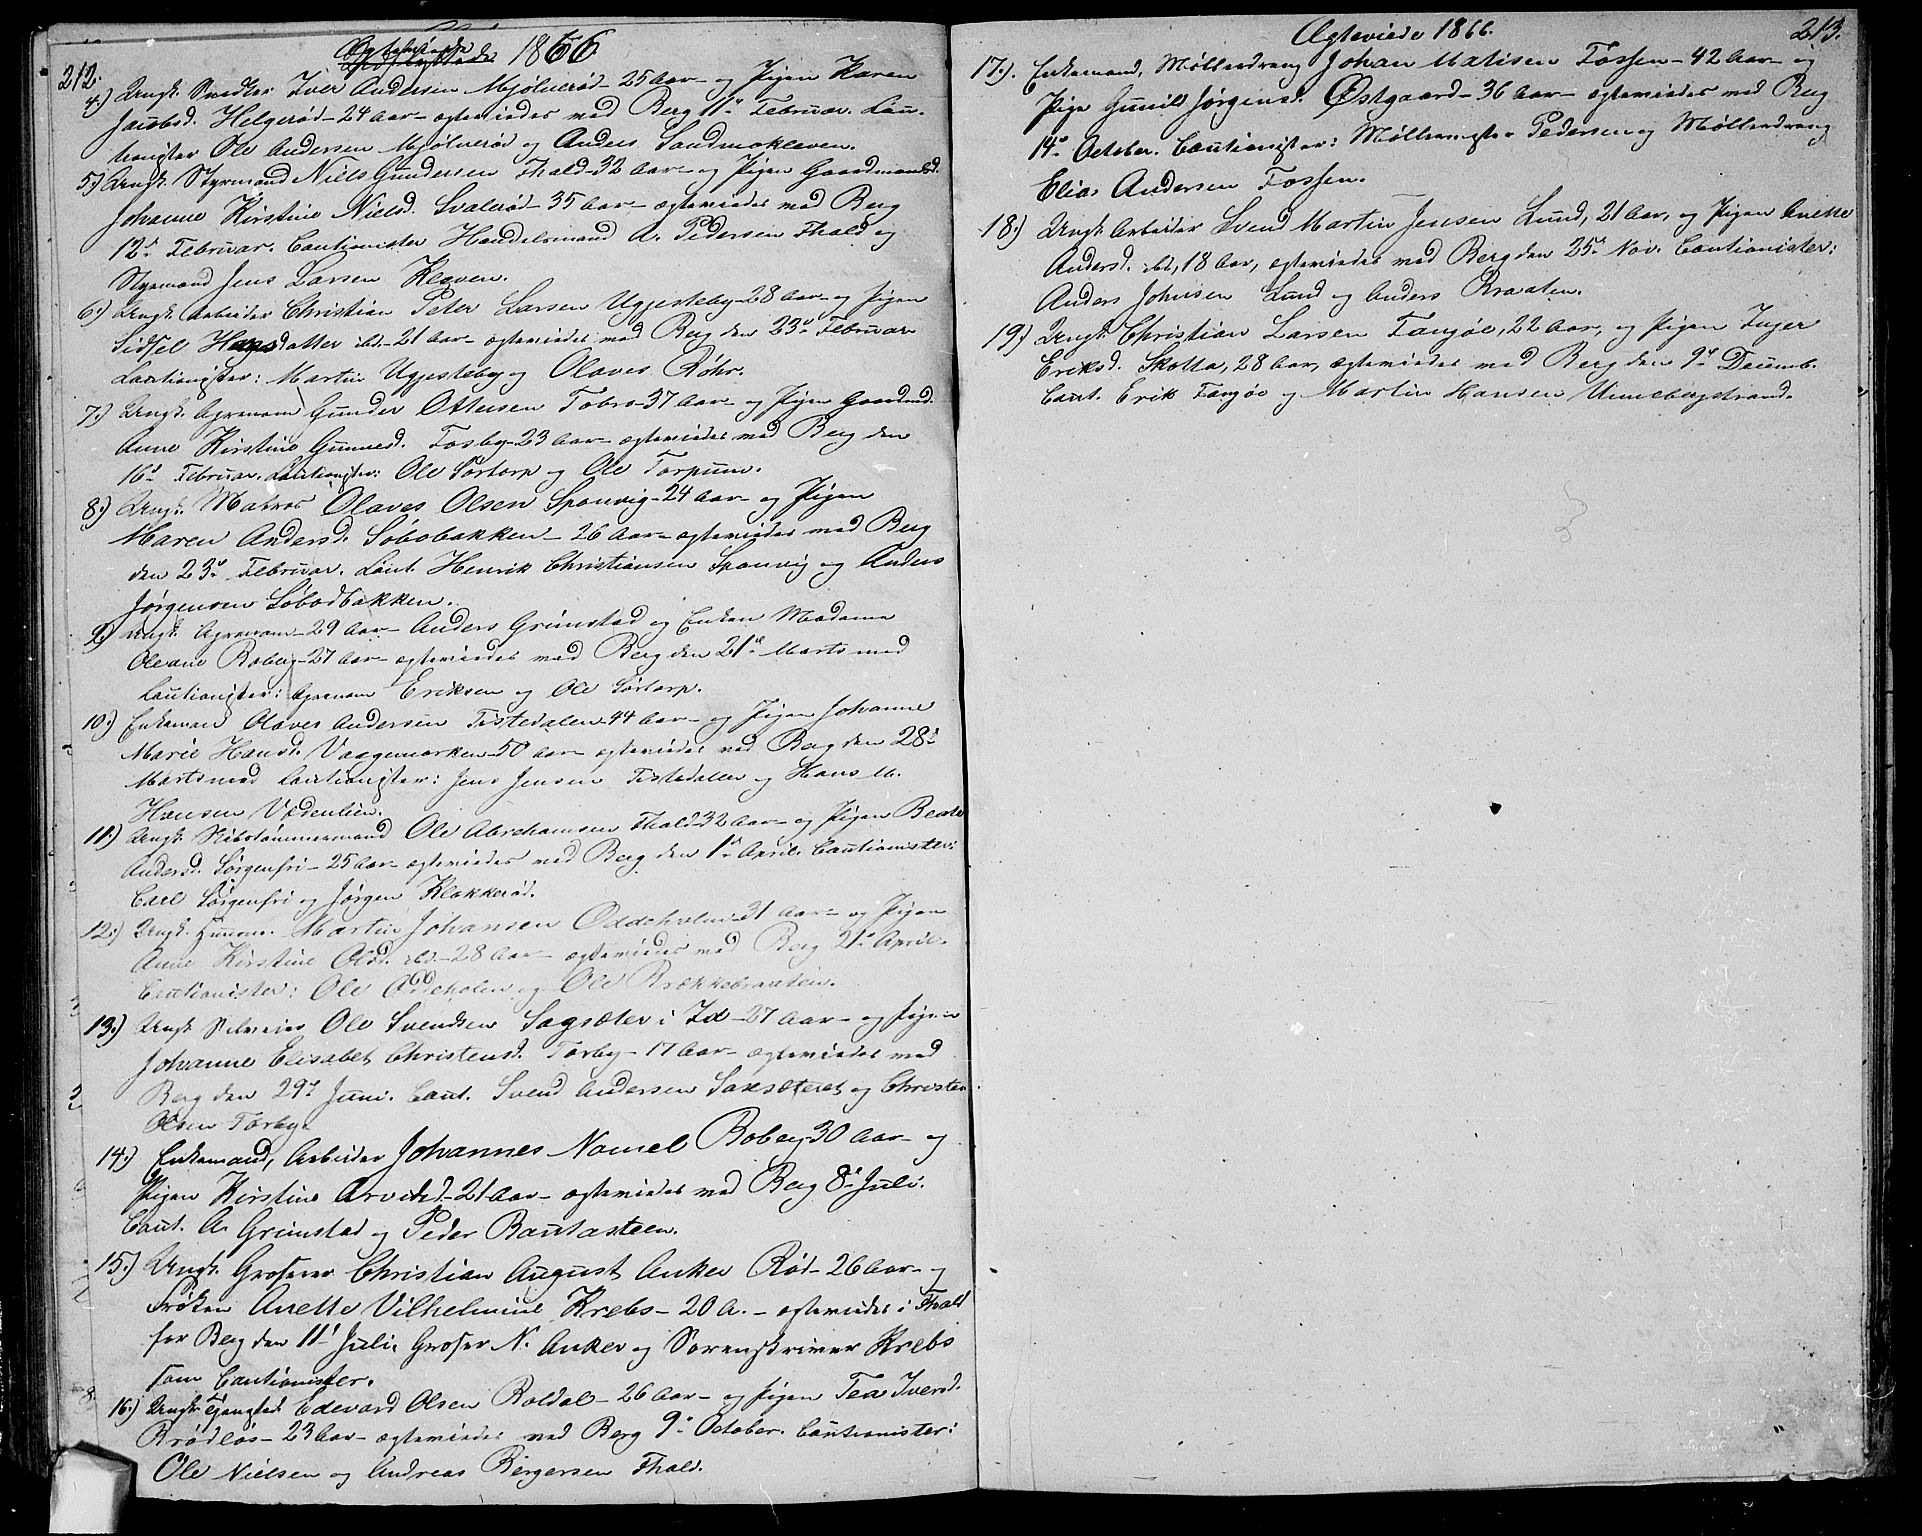 212.
Ægteviede 1866
4.) Ungk. Snedker Iver Andersen Mjølnerød - 25 Aar - og Pigen Karen
Jacobsd. Helgerød - 24 Aar - ægteviedes ved Berg 11te Februar. Cau-
tionister Ole Andersen Mjølnerød og Anders Sandmokleven.
5.) Ungk. Styrmand Niels Gundersen Fhald - 32 Aar - og Pigen Gaardmandsd.
Johanne Kirstine Nielsd. Svalerød - 35 Aar, ægteviedes ved Berg
12te Februar. Cautionister Handelsmand A. Pedersen Fhald og
Styrmand Jens Larsen Kleven.
6.) Ungk. Arbeider Christian Peter Larsen Ugjesteby - 28 Aar - og Pigen
Sidsel Hansdatter ibd. - 21 Aar - ægteviedes ved Berg den 23de Februar
Cautionister: Martin Ugjesteby og Olaves Røhr.
7.) Ungk. Agronom Gunder Ottersen Tobro - 37 Aar - og Pigen Gaardmd.
Anne Kirstine Gunnesd. Fosby - 23 Aar - ægteviedes ved Berg den
16de Februar. Cautionister: Ole Sørtorp og Ole Torpum.
8.) Ungk. Matros Olaves Olsen Sponvig - 24 Aar - og Pigen
Maren Andersd. Søbobakken - 26 Aar - ægteviedes ved Berg
den 23de Februar. Caut. Henrik Christiansen Sponvig og Anders
Jørgensen Søbodbakken.
9.) Ungk. Agronom - 29 Aar - Anders Grimstad og Enken Madame
Oleane Roberg - 27 Aar - ægteviedes ved Berg den 21de Marts med
Cautionister: Agronom Eriksen og Ole Sørtorp.
10.) Enkemand Olaves Andersen Tistedalen - 44 Aar - og Pigen Johanne
Marie Hansd. Vaagemarken - 50 Aar - ægteviedes ved Berg den 28de
Marts med Cautionister: Jens Jensen Tistedalen og Hans M.
Hansen Vedenlien.
11.) Ungk. Skibstømmermand Ole Abrahamsen Fhald - 32 Aar - og Pigen Beate
Andersd. Sørgenfri - 25 Aar - ægteviedes ved Berg den 1ste April. Cautionister:
Carl Sørgenfri og Jørgen Klokkerød.
12.) Ungk. Martin Johansen Oddeholen - 31 Aar - og Pigen
Anne Kirstine Olsd. ibd. - 28 Aar - ægteviedes ved Berg 21de April.
Cautionister: Ole Oddeholen og Ole Brækkebraaten.
13.) Ungk. Selveier Ole Svendsen Sagsæter i Id - 27 Aar - og Pigen
Johanne Elisabet Christensd. Torby - 17 Aar - ægteviedes ved
Berg den 29de Juni. Caut. Svend Andersen Saxsæteret og Christen
Olsen Torby.
14.) Enkemand, Arbeider Johannes Noniel Roberg 30 Aar - og
Pigen Kirstine Arvidsd. - 21 Aar - ægteviedes ved Berg 8de Juli.
Caut. A. Grimstad og Peder Bautasteen.
15.) Ungk. Grosserer Christian August Anker Rød - 26 Aar - og
Frøken Anette Vilhelmine Krebs - 20 A. - ægteviedes i Fhald
for Berg den 11te Juli. Grosser N. Anker og Sorenskriver Krebs
som Cautionister.
16.) Ungk. Edevard Olsen Roldal - 26 Aar - og Pigen Tea Iversd.
Brødløs - 23 Aar - ægteviedes ved Berg 9de October. Cautionister:
Ole Nielsen og Andreas Bergersen Fhald.
Ægteviede 1866.
213.
17.). Enkemand, Møllerdreng Johan Matisen Fossen - 42 Aar - og
Pige Gunild Jørgensd. Østgaard - 36 Aar - ægteviedes ved Berg
14de October. Cautionister: Møllemester Pedersen og Møllerdreng
Elias Andersen Fossen.
18.) Ungk. Arbeider Svend Martin Jensen Lund, 21 Aar, og Pigen Anette
Andersd. ibd, 18 Aar, ægteviedes ved Berg den 25de Nov. Cautionister:
Anders Johnsen Lund og Anders Braaten.
19.) Ungk. Christian Larsen Tangøe, 22 Aar, og Pigen Inger
Eriksd. Skotta, 28 Aar, ægteviedes ved Berg den 9de Decemb.
Caut. Erik Tangøe og Martin Hansen Unnebergstrand.